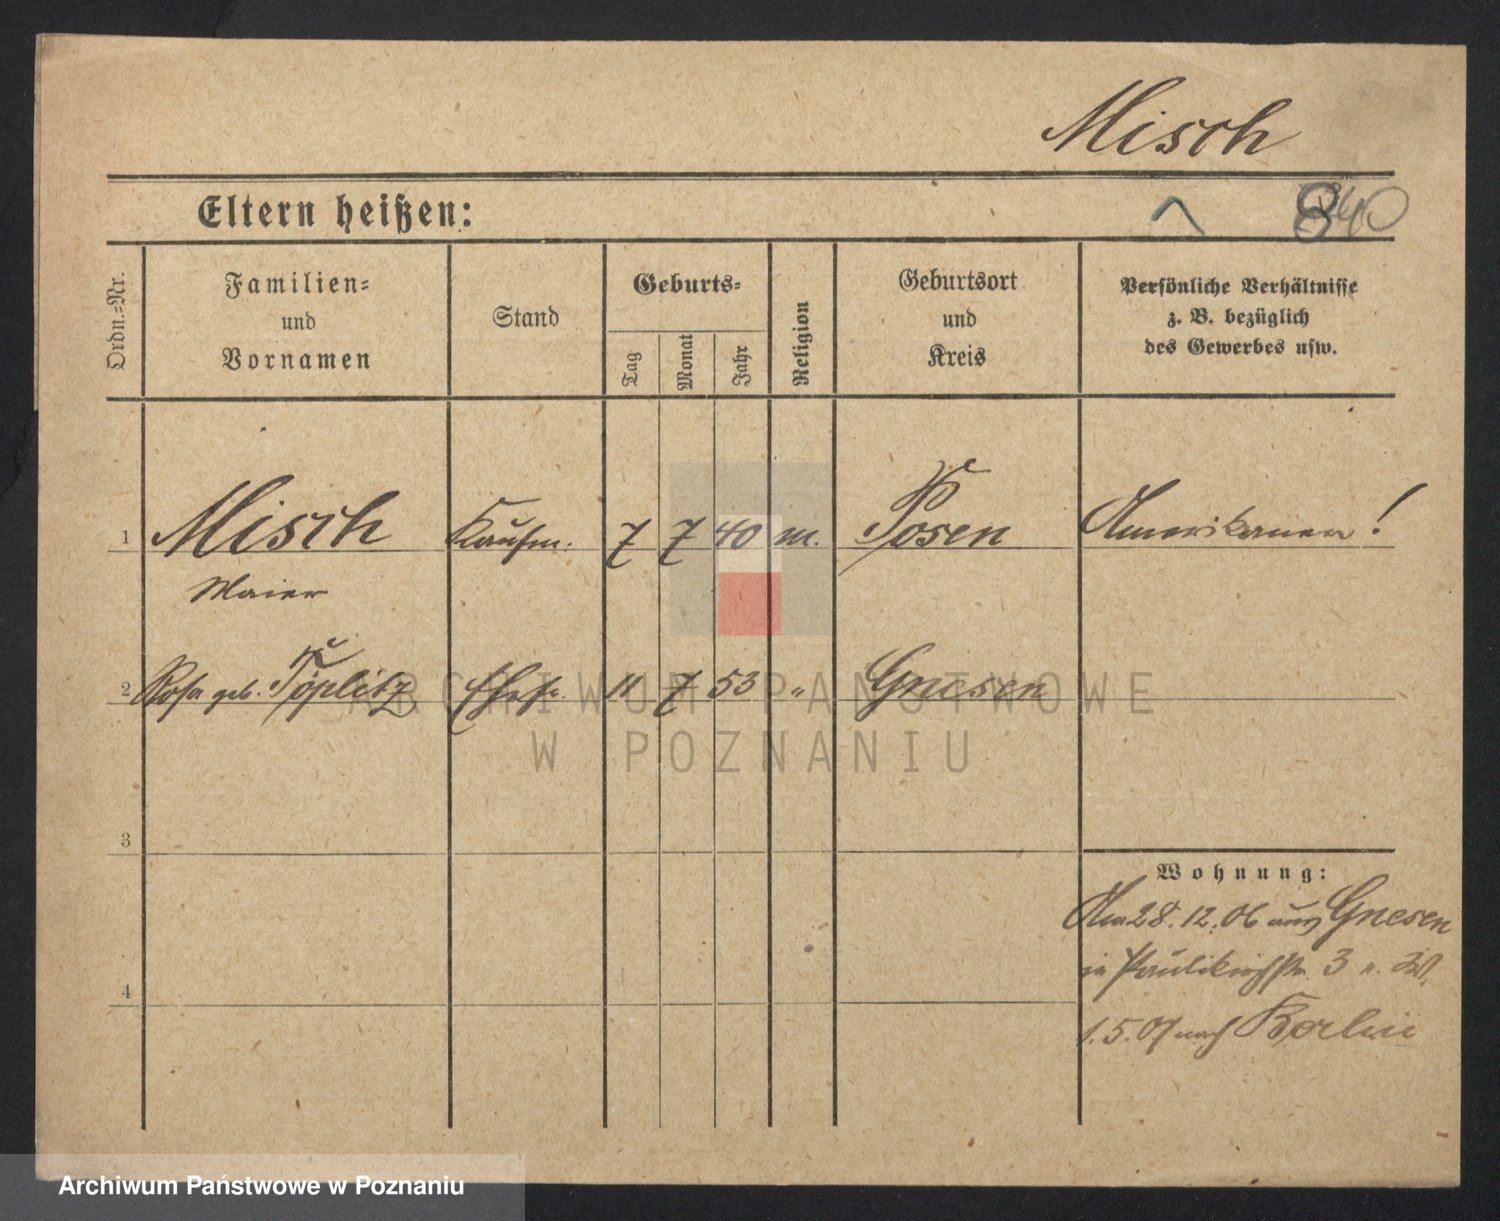 Misch
Eltern heißen:
840
Ordn.-Nr.
Familien-
und
Vornamen
Stand
Geburts-
Tag
Monat
Jahr
Religion
Geburtsort
und
Kreis
Persönliche Verhältnisse
z. B. bezüglich
des Gewerbes usw.
1 Misch Kaufm. 7 7 40 m. Posen Amerikaner!
Maier
2 Rosa geb. Töplitz Ehefr. 11 7 53 " Gnesen
ARCHIWUM PAŃSTWOWE
W POZNANIU
3
Wohnung:
Am 28.12.06 aus Gnesen
in Paulikirchstr. 3 b.
4
1.5.07 nach Berlin
Archiwum Państwowe w Poznaniu